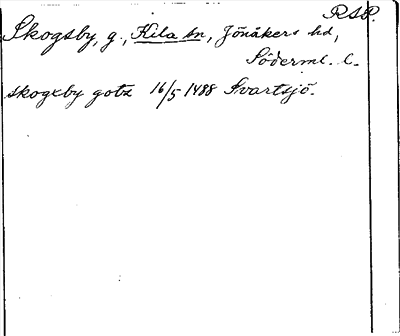 RSP.
Skogsby, g., Kila sn, Jönåkers hd,
Söderml. l.
skogxby gotz 16/5 1488 Svartsjö.